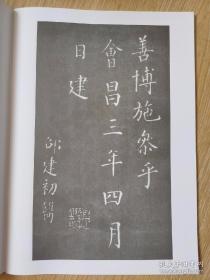 善博施祭乎
會昌三年四月
日建
邵建初鐫